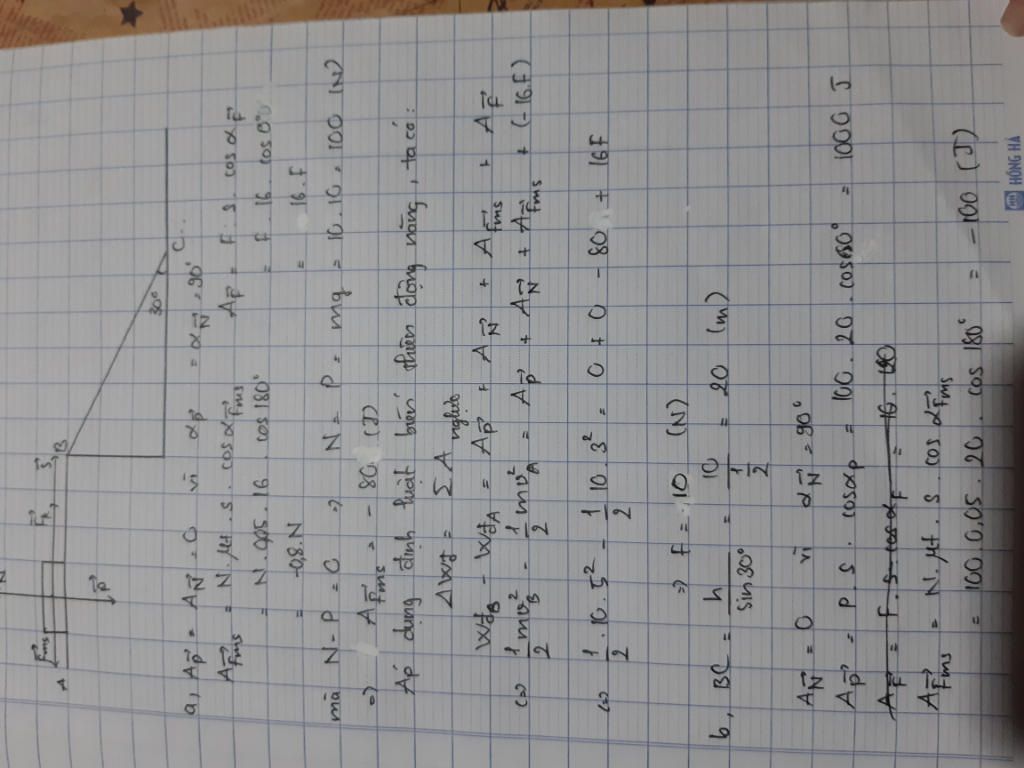 N
Fms Fk S
A B
P
30° C
a, AP = AN = 0 vì αP = αN = 90°
AFms = N. μt. s. cos αFms AF = F. s. cos αF
= N. 0,05. 16. cos 180° = F. 16. cos 0°
= -0,8.N = 16.F
mà N - P = 0 => N = P = mg = 10.10 = 100 (N)
=> AFms = - 80 (J)
Áp dụng định luật biến thiên động năng, ta có:
ΔWđ = Σ A ngoại
WđB - WđA = AP + AN + AFms + AF
(=) 1/2 mvB² - 1/2 mvA² = AP + AN + AFms + (-16.F)
(=) 1/2 . 10. 5² - 1/2 10. 3² = 0 + 0 - 80 + 16F
=> F = 10 (N)
b, BC = h/sin 30° = 10/(1/2) = 20 (m)
AN = 0 vì αN = 90°
AP = P. S. cosαP = 100. 20. cos60° = 1000 J
AF = F. S. cos αF = 16.
AFms = N. μt. s. cos αFms
= 100.0,05. 20. cos 180° = -100 (J)
HỒNG HÀ